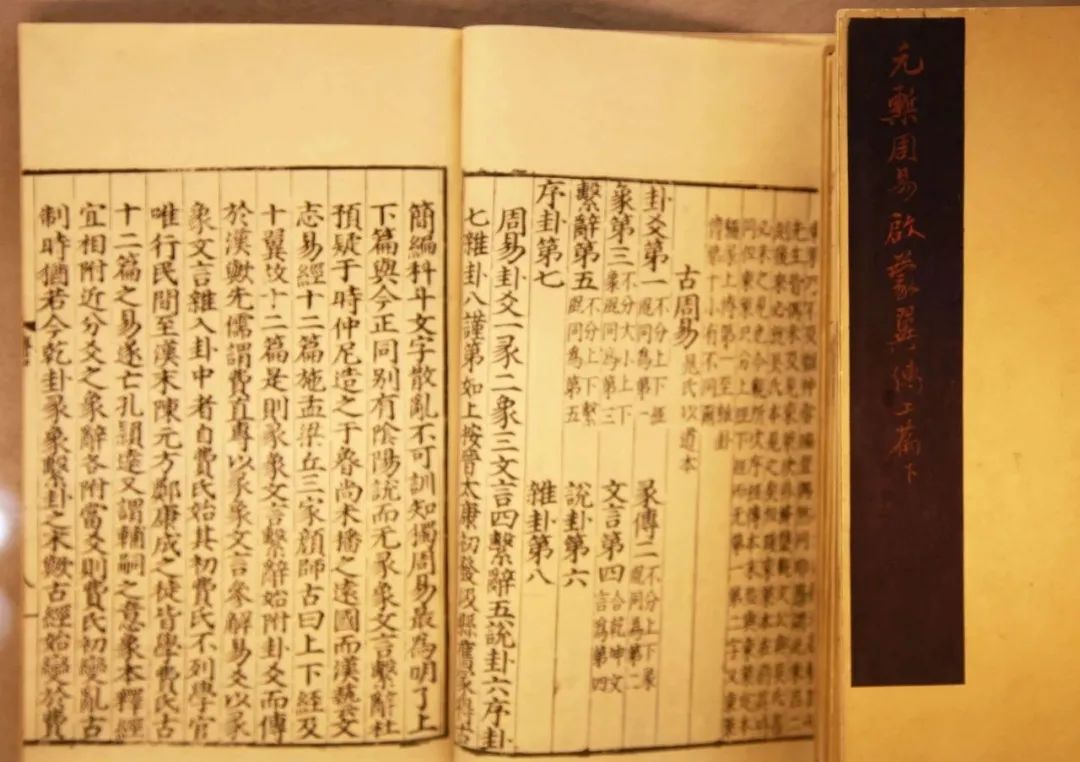 元槧周易啟蒙翼傳上篇下
古周易 晁氏以道本
卦爻第一 不分上下經混同為第一 彖傳二 不分上下彖混同為第二
象第三 不分大小上下象混同為第三 文言第四 合乾坤文言為第四
繫辭第五 不分上下繫混同為第五 說卦第六
序卦第七 雜卦第八
周易卦爻一彖二象三文言四繫辭五說卦六序卦
七雜卦八謹第如上按晉太康初發汲縣舊冢得古
簡編科斗文字散亂不可訓知獨周易最為明了上
下篇與今正同別有陰陽說而无彖象文言繫辭杜
預疑于時仲尼造之于魯尚未播之遠國而漢藝文
志易經十二篇施孟梁丘三家顔師古曰上下經及
十翼故十二篇是則彖象文言繫辭始附卦爻而傳
於漢歟先儒謂費直專以彖象文言參解易爻以彖
象文言雜入卦中者自費氏始其初費氏不列學官
唯行民間至漢末陳元方鄭康成之徒皆學費氏古
十二篇之易遂亡孔穎達又謂輔嗣之意象本釋經
宜相附近分爻之象辭各附當爻則費氏初變亂古
制時猶若今乾卦彖象繫卦之末歟古經始變於費